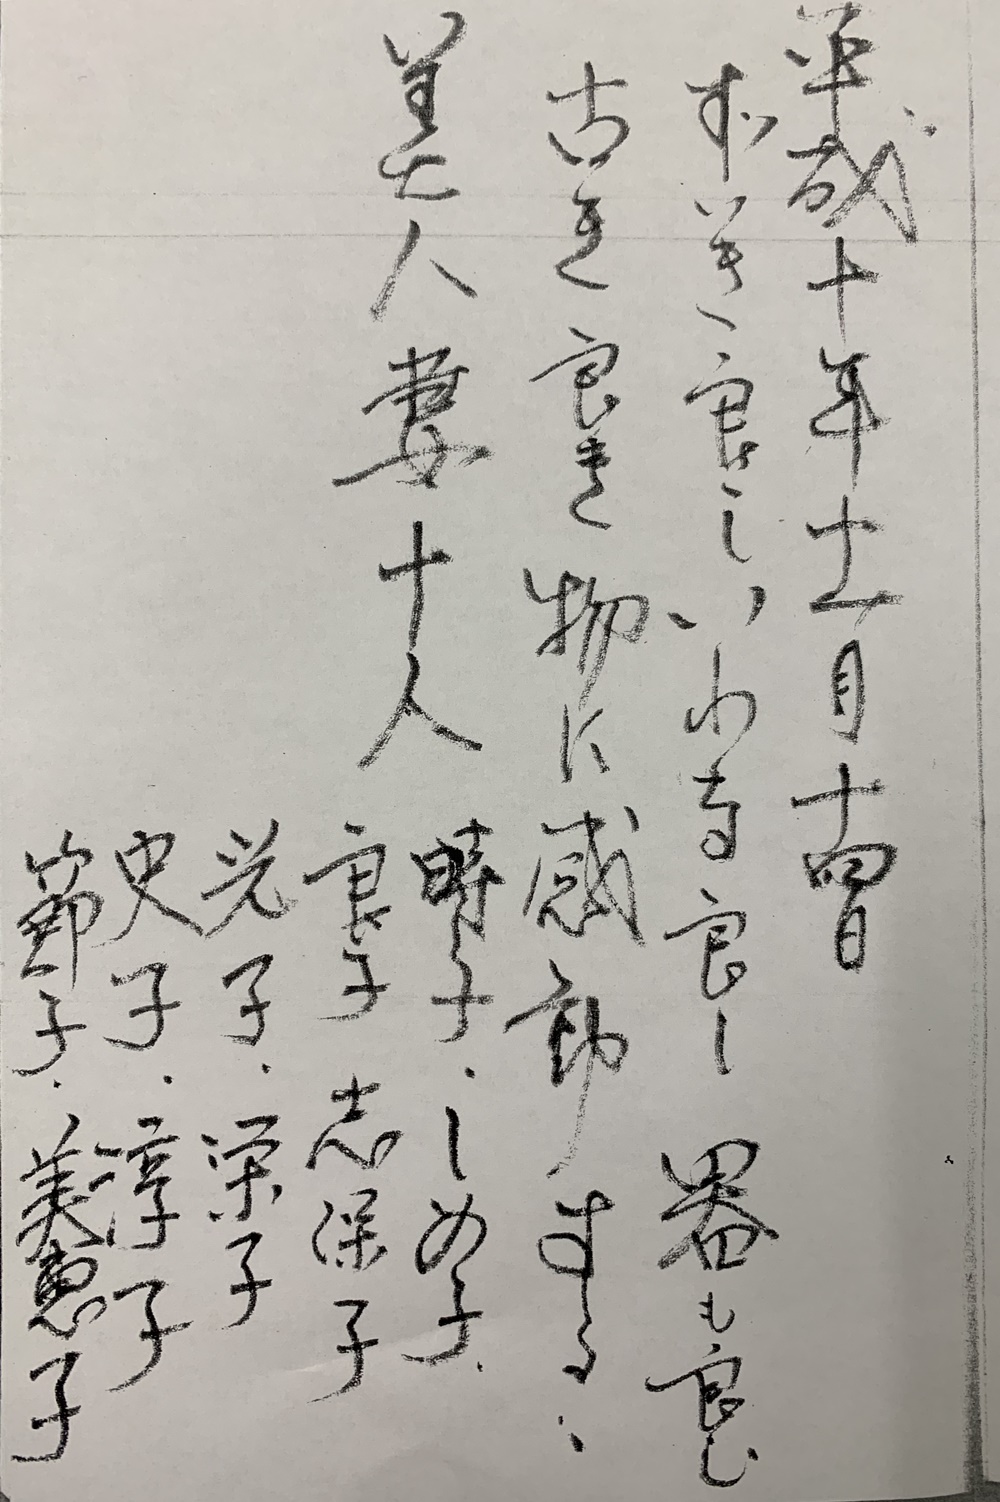 平成十年十一月十四日
良し 寺良し 器も良し
古き良き物に感動する、
美人妻十人
時子・しめ子・
良子 志保子
光子・栄子
史子・淳子
節子・美恵子